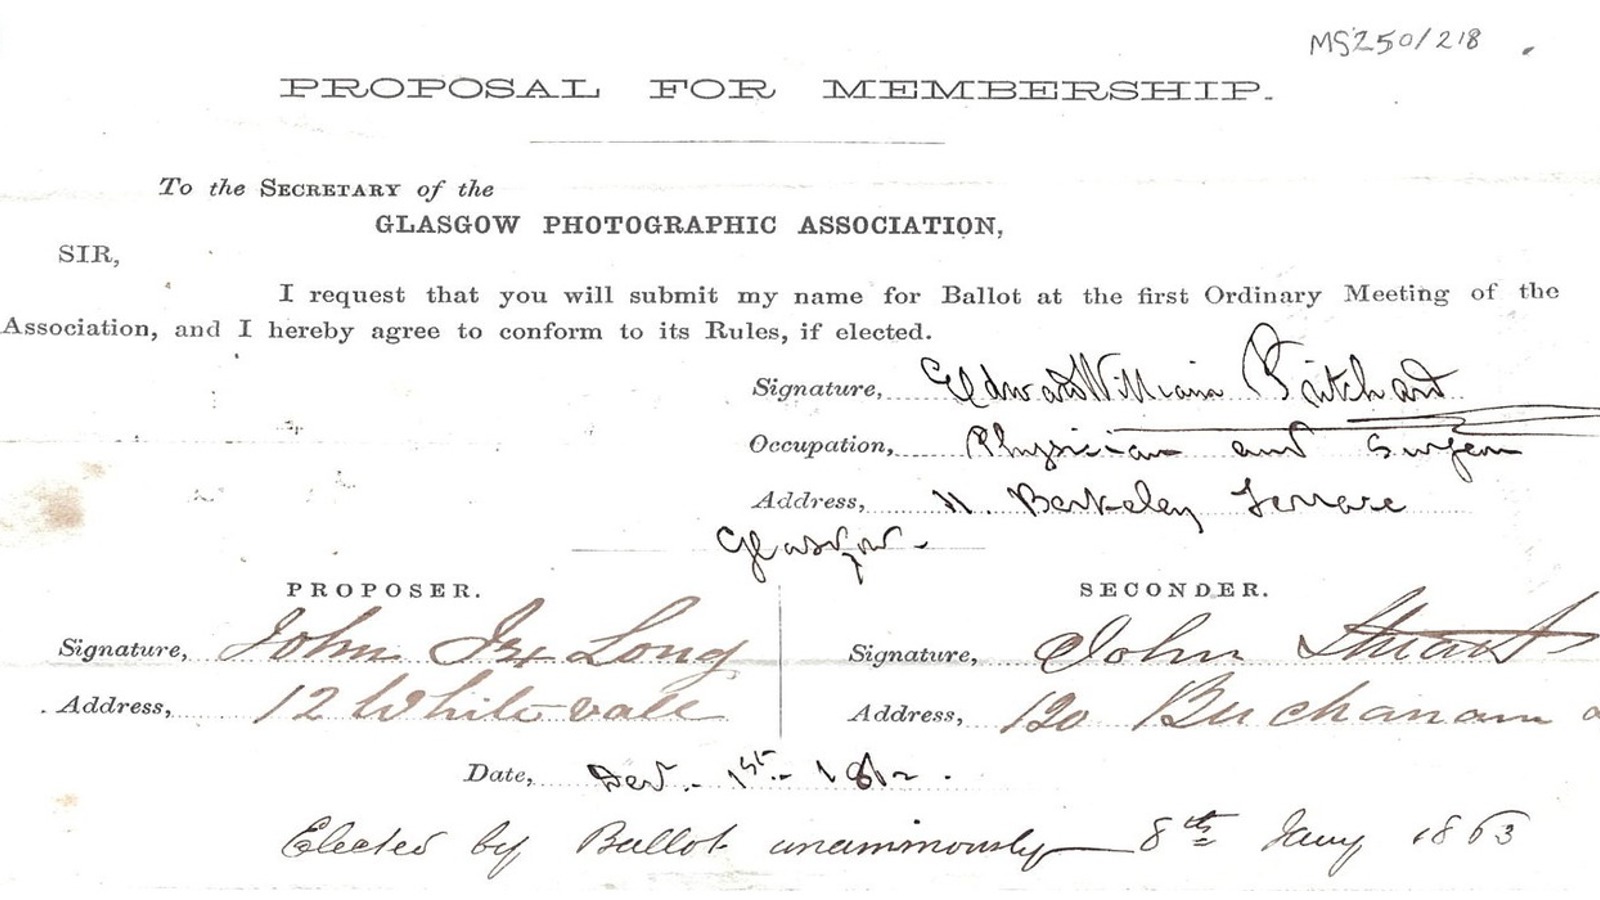 MS250/218
PROPOSAL FOR MEMBERSHIP.
To the SECRETARY of the
GLASGOW PHOTOGRAPHIC ASSOCIATION,
SIR,
I request that you will submit my name for Ballot at the first Ordinary Meeting of the
Association, and I hereby agree to conform to its Rules, if elected.
Signature, Edward William Pritchard
Occupation, Physician and Surgeon
Address, 11. Berkeley Terrace
Glasgow.
PROPOSER.
Signature, John Long
Address, 12 Whitevale
SECONDER.
Signature, John Stuart
Address, 120 Buchanan
Date, 1st. 1862.
Elected by Ballot unanimously 8th Jany 1863